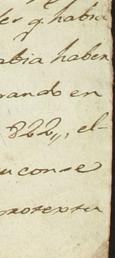 les q.e habia
abia haben
rando en
822,, el-
u conse
protexta